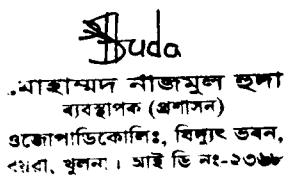 Huda
মোহাম্মদ নাজমুল হুদা
ব্যবস্থাপক (প্রশাসন)
ওজোপাডিকোলিঃ, বিদ্যুৎ ভবন,
বয়রা, খুলনা। আই ডি নং-২৩৬৮